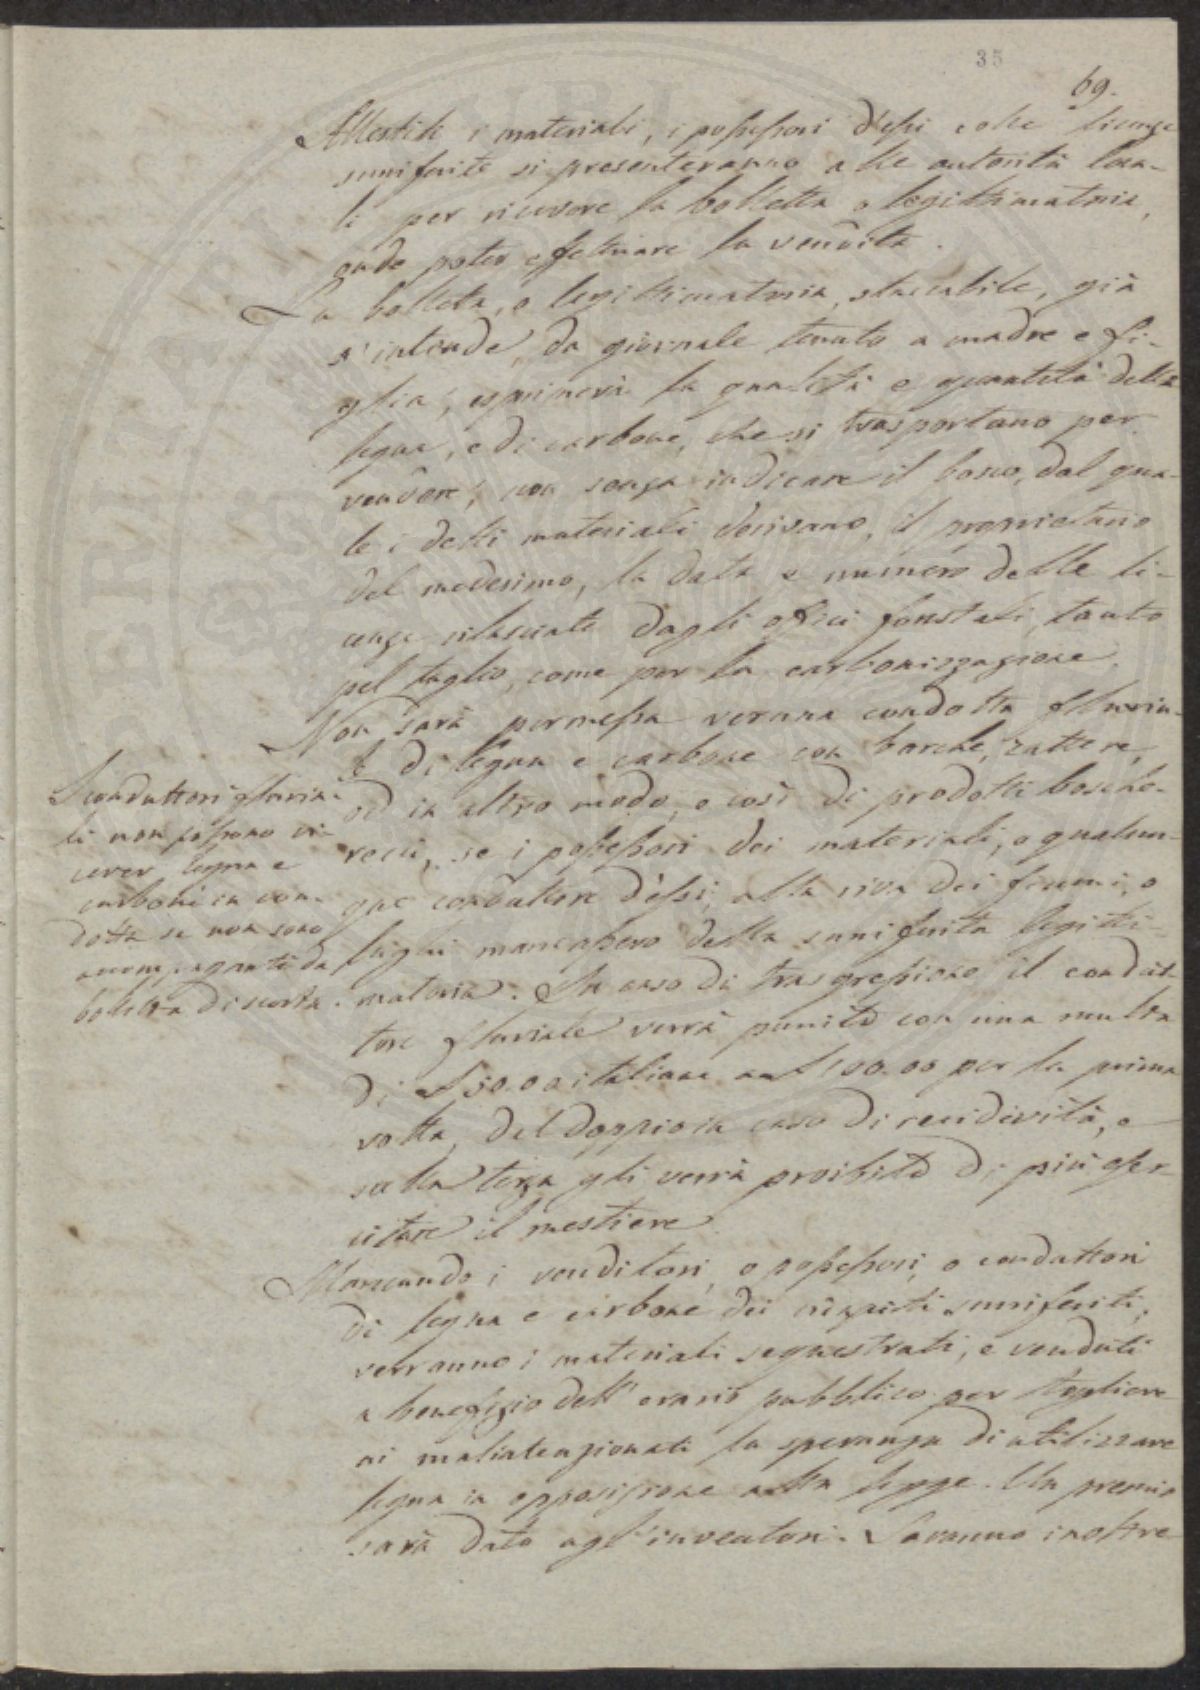 35
69.
Allestiti i materiali, i possessori d'essi colle licenze
surriferite si presenteranno alle autorità loca-
li per ricevere la bolletta o legittimatoria,
onde poter effettuare la vendita.
La bolletta, o legittimatoria, staccabile, già
s'intende, da giornale tenuto a madre e fi-
glia, esprimerà la qualità e quantità della
legna, e di carbone, che si trasportano per
vendere, non senza indicare il bosco, dal qua-
le i detti materiali derivano, il proprietario
del medesimo, la data e numero delle li-
cenze rilasciate dagli offici forestali, tanto
pel taglio, come per la carbonizzazione.
Non sarà permessa veruna condotta fluvia-
le di legna e carbone con barche, zattere,
od in altro modo, e così di prodotti bosche-
recci, se i possessori dei materiali, o qualun-
que conduttore d'essi, alla riva dei fiumi, o
laghi mancassero della surriferita legitti-
matoria. In caso di trasgressione il condut-
tore fluviale verrà punito con una multa
di £ 50.00 italiane a £ 100.00 per la prima
volta, del doppio in caso di recidività, e
sulla terza gli verrà proibito di più eser-
citare il mestiere.
I conduttori fluvia-
li non possono ri-
cever legna e
carboni in con-
dotta se non sono
accompagnati da
bolletta di scorta.
Mancando i venditori, o possessori, o conduttori
di legna e carbone dei ricapiti surriferiti,
verranno i materiali sequestrati, e venduti
a benefizio dell'erario pubblico per togliere
ai malintenzionati la speranza di utilizzare
legna in opposizione alla legge. Un premio
sarà dato agl'inventori. Saranno inoltre